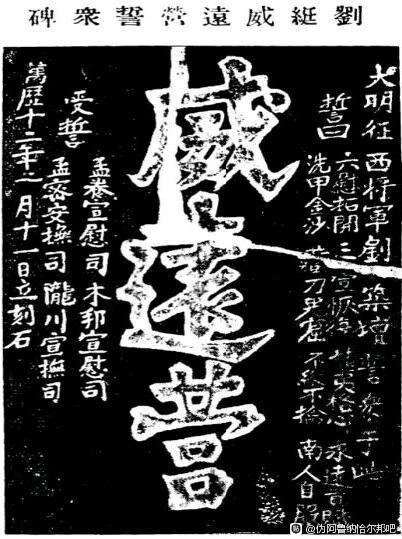 劉綎威遠營誓眾碑
大明征西將軍劉 築壇誓眾于此
誓曰
六慰拓開 三宣恢復 夷格心 永遠貢賦
洗甲金沙 刀鬼窟 不縱不擒 南人自服
威遠營
受誓
孟養宣慰司 木邦宣慰司
孟密安撫司 隴川宣撫司
萬歷十二年二月十一日立刻石
@伪阿鲁纳恰尔邦吧